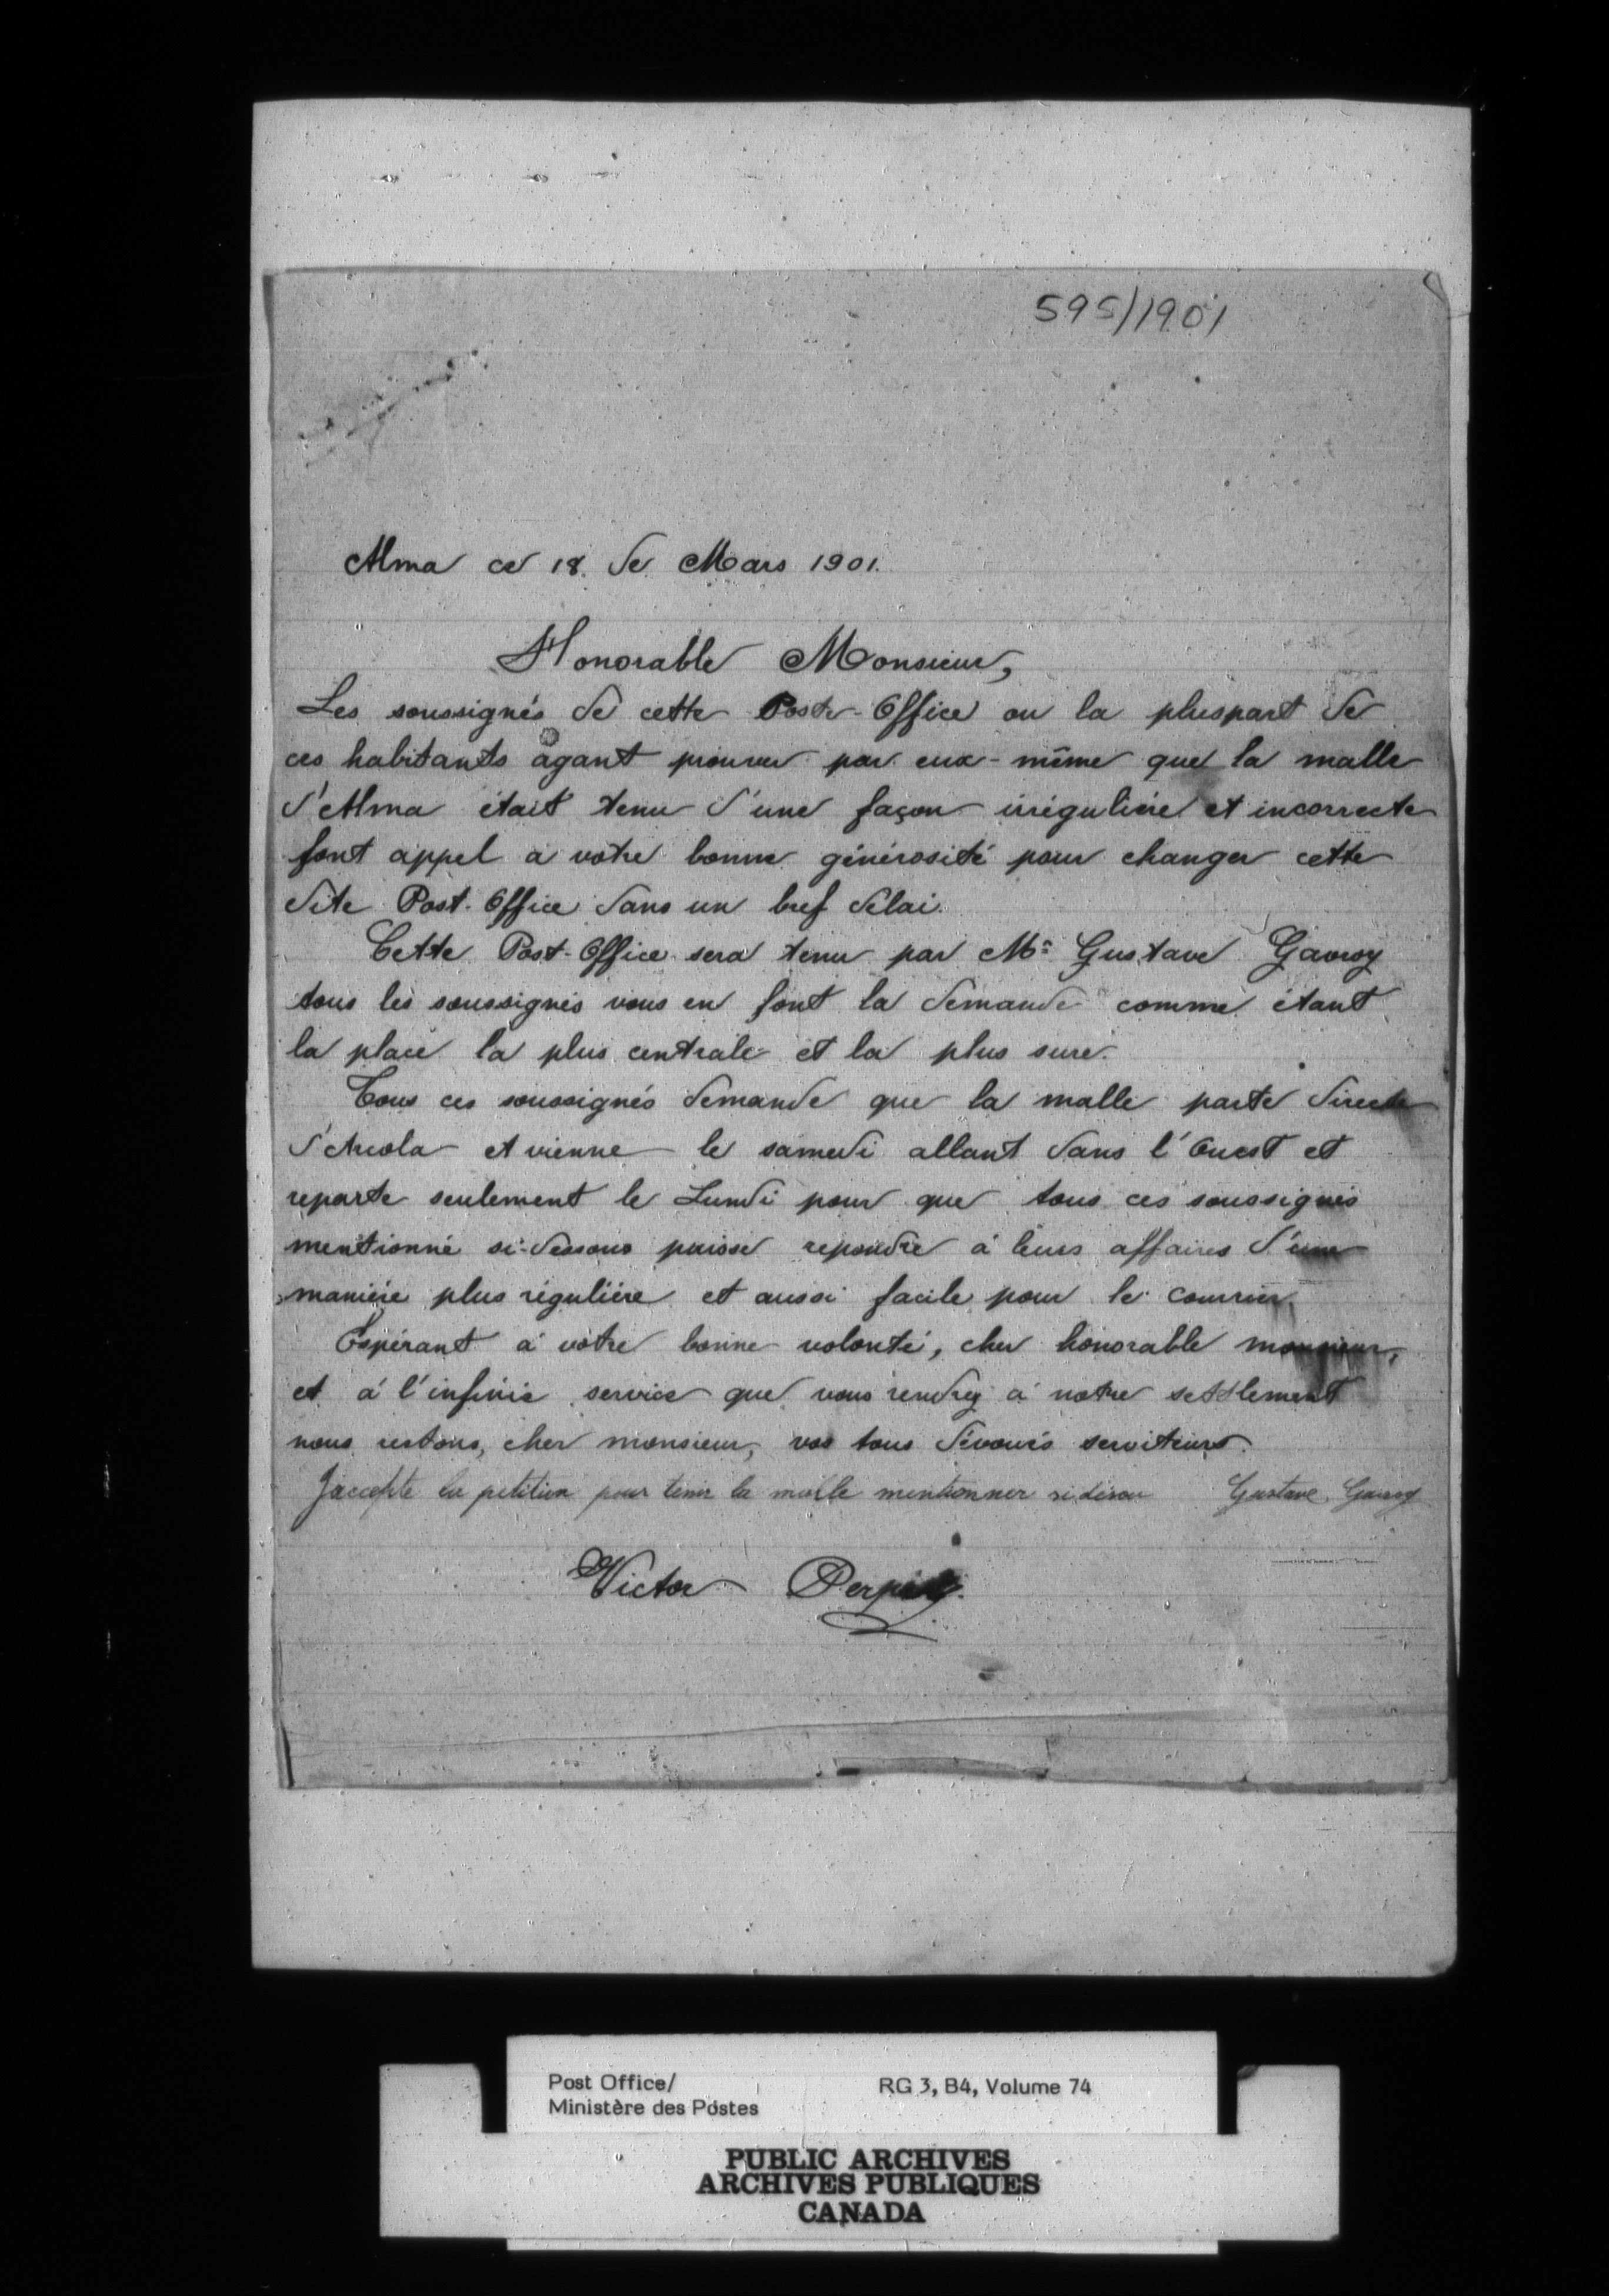 595/1901
Alma ce 18. de Mars 1901.
Honorable Monsieur,
Les soussignés de cette Post-Office ou la pluspart de
ces habitants ayant prouver par eux-même que la malle
d'Alma était tenu d'une façon irrégulière et incorrecte
font appel à votre bonne générosité pour changer cette
dite Post-Office dans un bref délai.
Cette Post-Office sera tenu par Mr Gustave Gavroy
tous les soussignés vous en font la demande comme étant
la place la plus centrale et la plus sure.
Tous ces soussignés demande que la malle parte directe
d'Arcola et vienne le samedi allant dans l'Ouest et
reparte seulement le Lundi pour que tous ces soussignés
mentionné si-dessous puisse repondre à leurs affaires d'une
manière plus régulière et aussi facile pour le courrier.
Espérant à votre bonne volonté, cher honorable monsieur,
et à l'infinie service que vous rendrez à notre settlement
nous restons, cher monsieur, vos tous dévoués serviteurs.
J'accepte la petition pour tenir la malle mentionner sidesou Gustave Gavroy
Victor
Post Office/ RG 3, B4, Volume 74
Ministère des Postes
PUBLIC ARCHIVES
ARCHIVES PUBLIQUES
CANADA